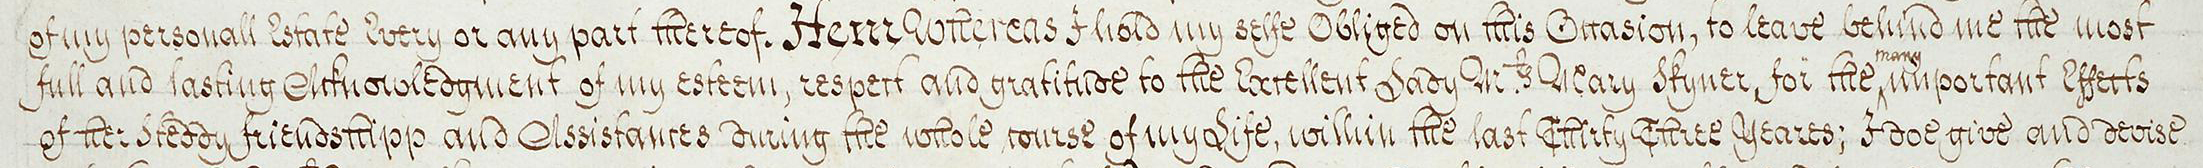 of my personall Estate Every or any part thereof. Item Whereas I hold my selfe Obliged on this Occasion, to leave behind me the most
full and lasting Acknowledgment of my esteem, respect and gratitude to the Excellent Lady Mrs. Mary Skyner, for the many important Effects
of her Steddy friendshipp and Assistances during the whole course of my Life, within the last Thirty Three Yeares; I doe give and devise